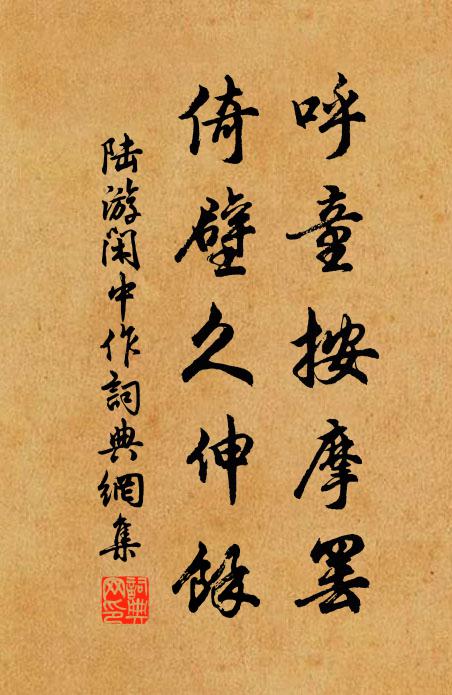 呼童按摩罢
倚壁久伸餘
陆游閑中作詞典網集
詞典网印